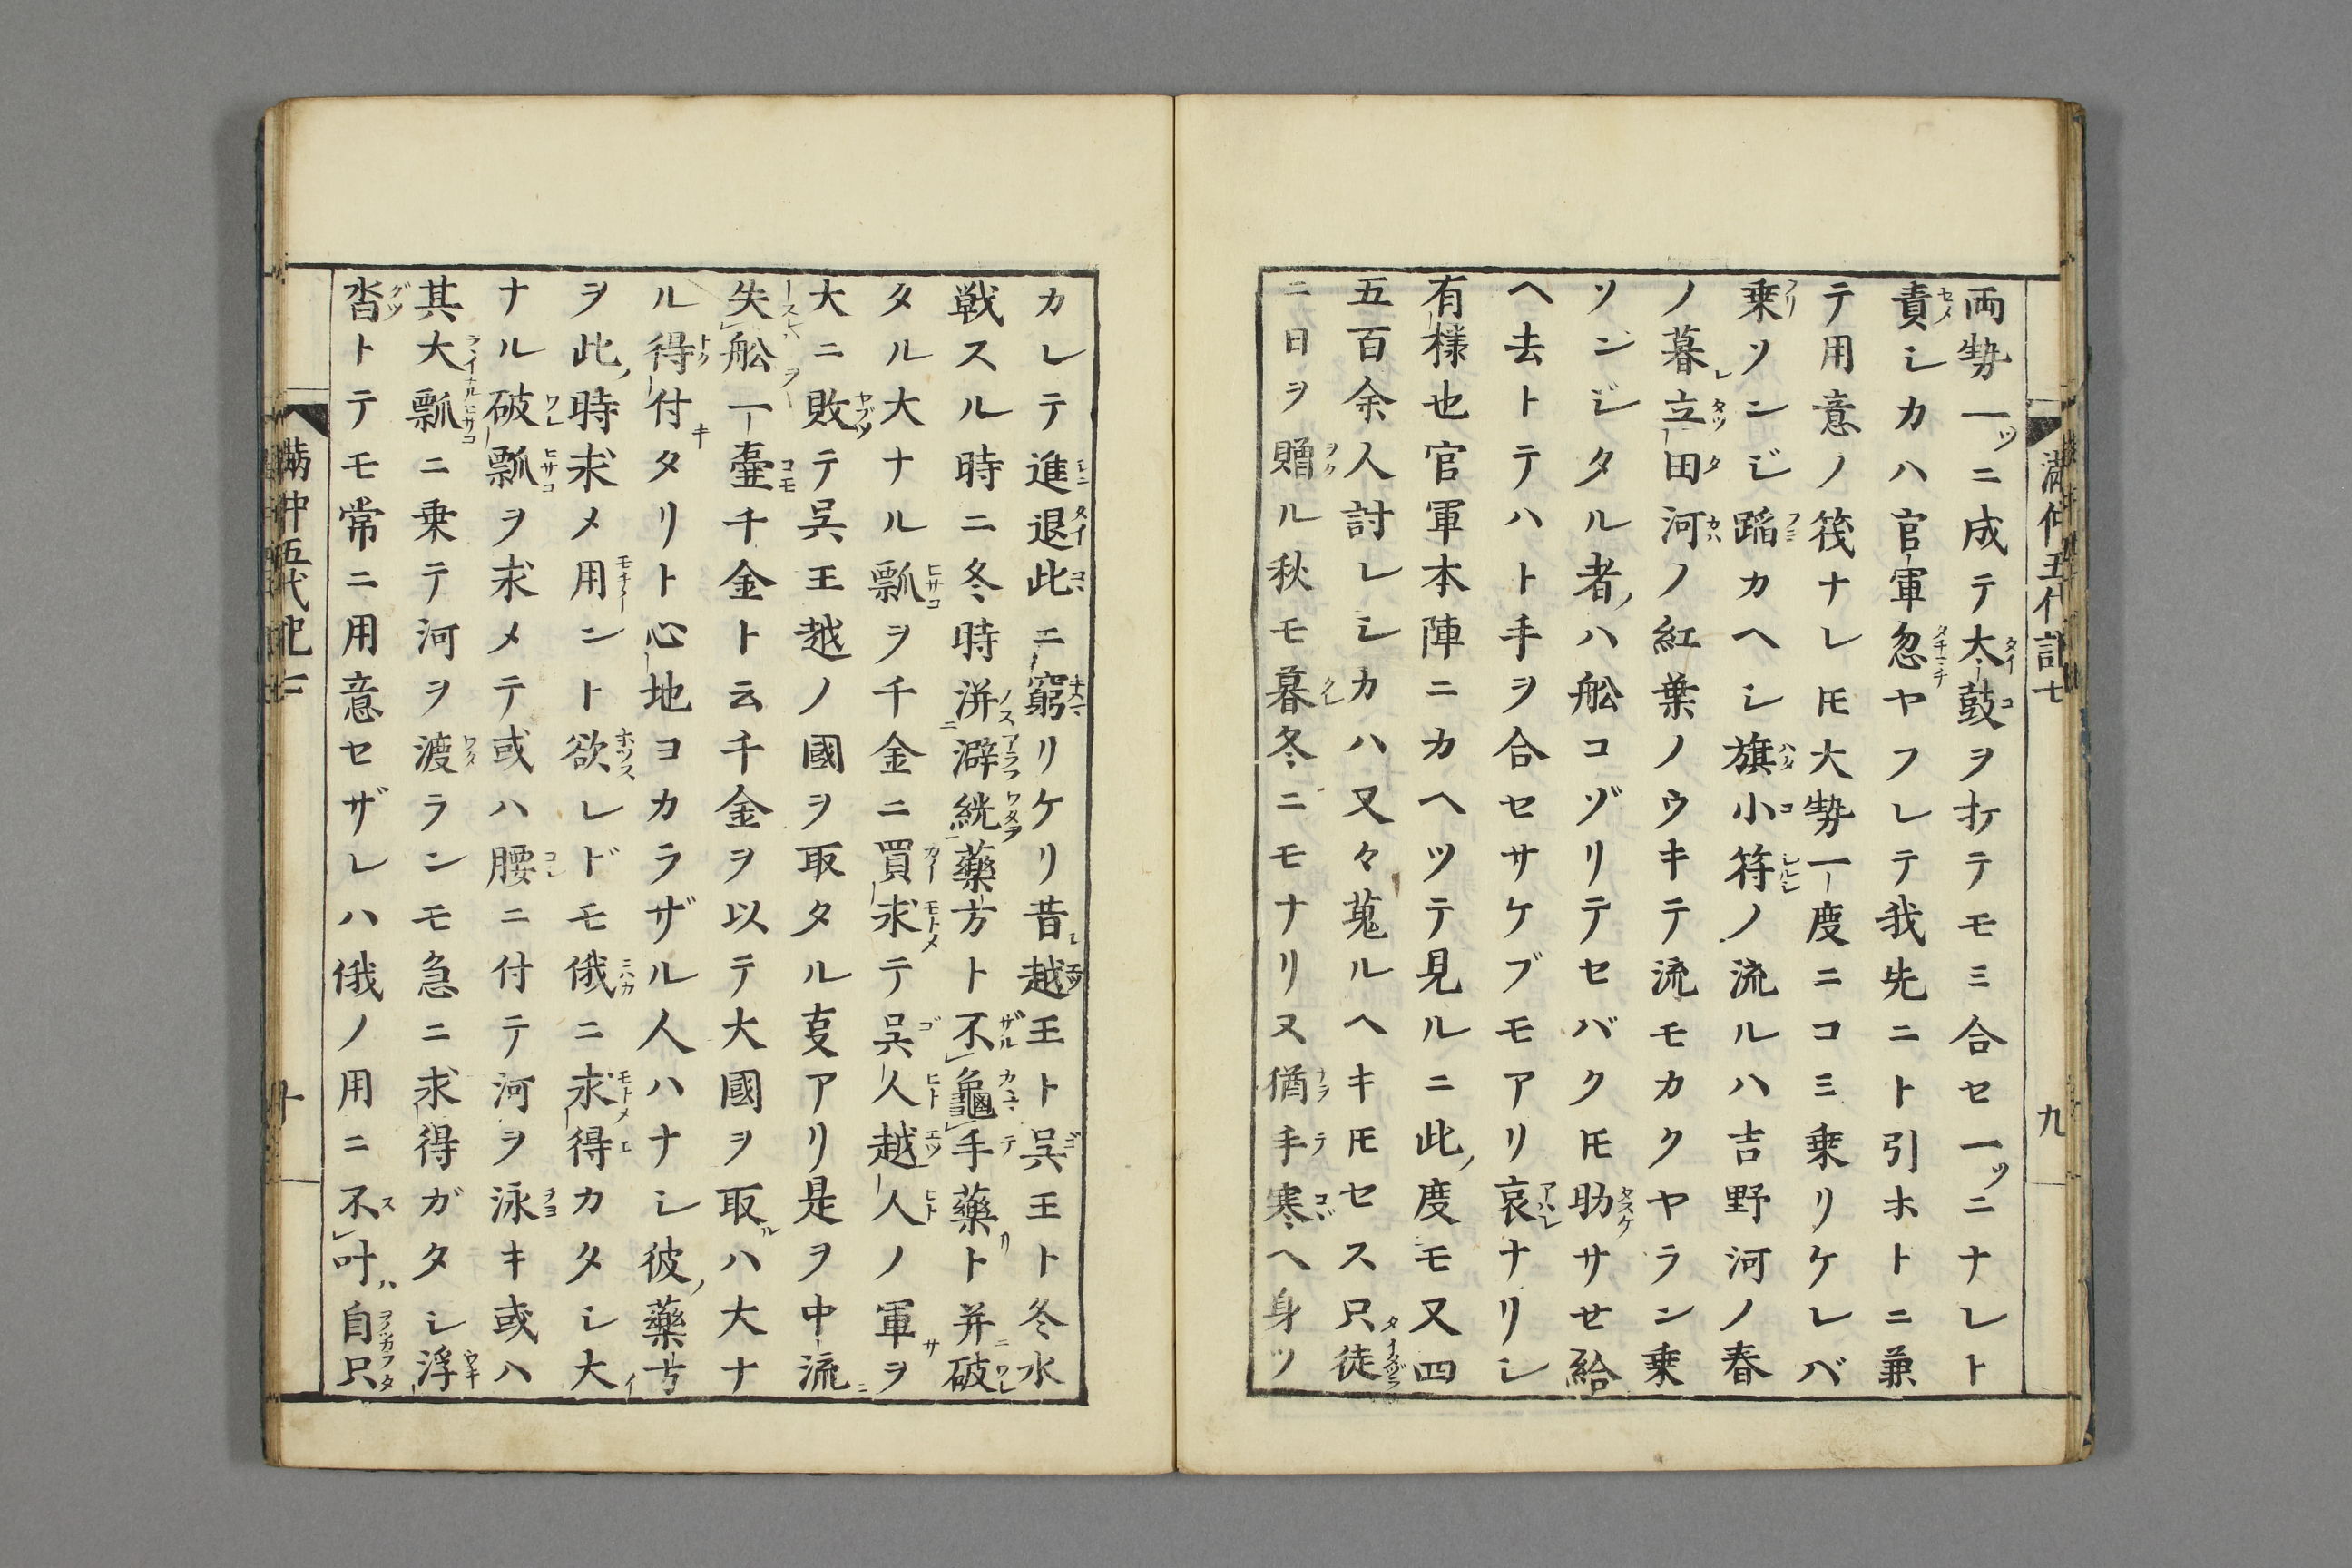 両勢一ツニ成テ大鼓ヲ扣テモミ合セ一ツニナレト
責シカハ官軍忽ヤフレテ我先ニト引ホトニ兼
テ用意ノ筏ナレ𪜈大勢一度ニコミ乗リケレバ
乗ソンジ蹈カヘシ旗小符ノ流ルハ吉野河ノ春
ノ暮立田河ノ紅葉ノウキテ流モカクヤラン乗
ソンジタル者ハ舩コゾリテセバク𪜈助サせ給
ヘ去トテハト手ヲ合セサケブモアリ哀ナリシ
有様也官軍本陣ニカヘツテ見ルニ此度モ又四
五百余人討レシカハ又々蒐ルヘキ𪜈セス只徒
ニ日ヲ贈ル秋モ暮冬ニモナリヌ猶手寒ヘ身ツ
満仲五代記七
九
カレテ進退此ニ窮リケリ昔越王ト呉王ト冬水
戦スル時ニ冬時洴澼絖藥方ト不龜手藥ト并破
タル大ナル瓢ヲ千金ニ買求テ呉人越人ノ軍ヲ
大ニ敗テ呉王越ノ國ヲ取タル叓アリ是ヲ中流
失舩一壷千金ト云千金ヲ以テ大國ヲ取ハ大ナ
ル得付タリト心地ヨカラザル人ハナシ彼藥方
ヲ此時求メ用ント欲レドモ俄ニ求得カタシ大
ナル破瓢ヲ求メテ或ハ腰ニ付テ河ヲ泳キ或ハ
其大瓢ニ乗テ河ヲ渡ランモ急ニ求得ガタシ浮
沓トテモ常ニ用意セザレハ俄ノ用ニ不叶自只
満仲五代記七
十